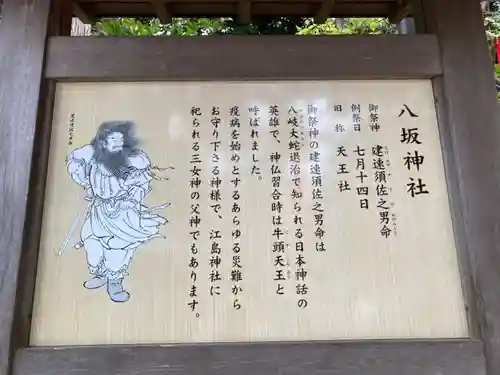 八坂神社
御祭神　建速須佐之男命
例祭日　七月十四日
旧称　天王社
御祭神の建速須佐之男命は
八岐大蛇退治で知られる日本神話の
英雄で、神仏習合時は牛頭天王と
呼ばれました。
疫病を始めとするあらゆる災難から
お守り下さる神様で、江島神社に
祀られる三女神の父神でもあります。